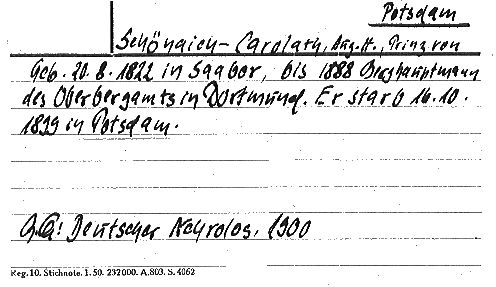 Potsdam
Schönaich-Carolath, Aug. H., Prinz von
Geb. 20.8.1822 in Saabor, bis 1888 Berghauptmann
des Oberbergamts in Dortmund. Er starb 16.10.
1899 in Potsdam.
Deutscher Nekrolog, 1900
Reg. 10. Stichnote. 1. 50. 232000. A.803. S. 4062